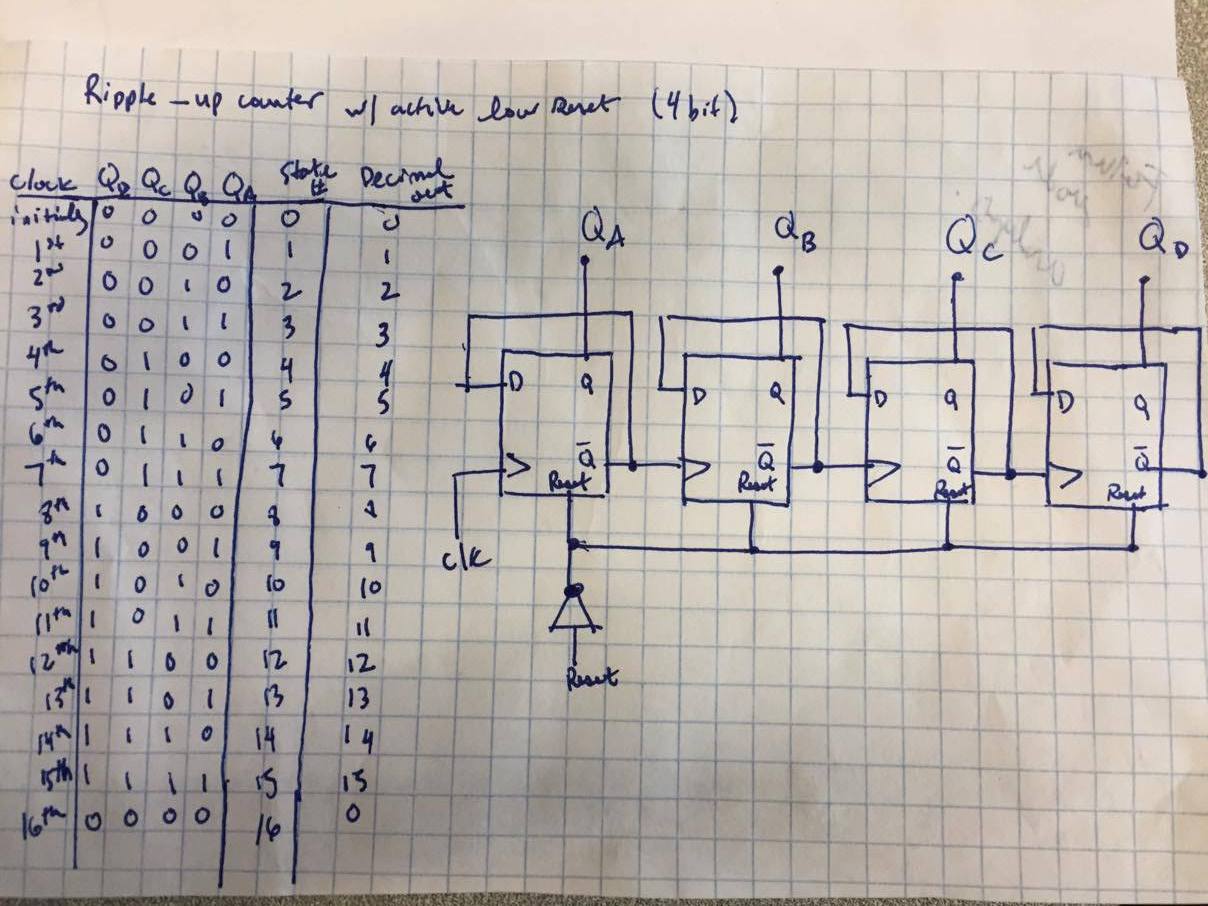 Ripple-up counter w/ active low reset (4 bit)
clock QD QC QB QA State # Decimal out
initially 0 0 0 0 0 0
1st 0 0 0 1 1 1
2nd 0 0 1 0 2 2
3rd 0 0 1 1 3 3
4th 0 1 0 0 4 4
5th 0 1 0 1 5 5
6th 0 1 1 0 6 6
7th 0 1 1 1 7 7
8th 1 0 0 0 8 8
9th 1 0 0 1 9 9
10th 1 0 1 0 10 10
11th 1 0 1 1 11 11
12th 1 1 0 0 12 12
13th 1 1 0 1 13 13
14th 1 1 1 0 14 14
15th 1 1 1 1 15 15
16th 0 0 0 0 16 0
QA QB QC QD
D Q D Q D Q D Q
Q̅ Q̅ Q̅ Q̅
Reset Reset Reset Reset
clk
Reset